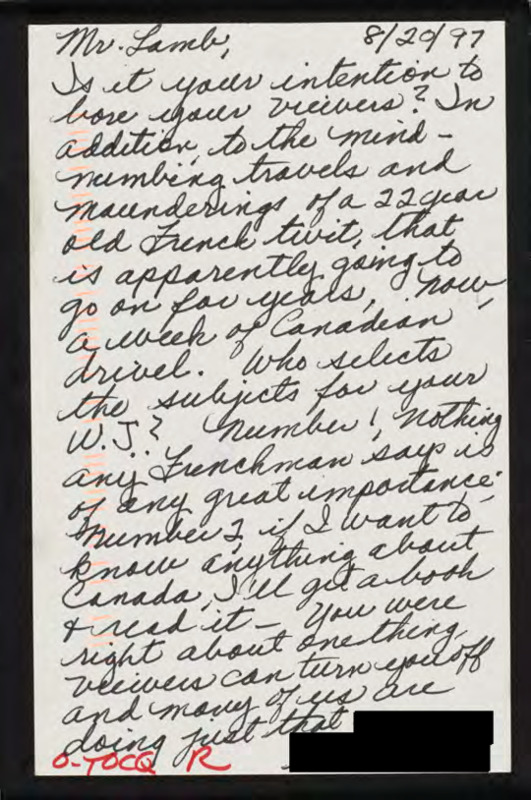 Mr. Lamb, 8/20/97
Is it your intention to
bore your veiwers? In
addition, to the mind-
numbing travels and
maunderings of a 22 year
old French twit, that
is apparently going to
go on for years, now,
a week of Canadian
drivel. Who selects
the subjects for your
W.J.? Number 1, nothing
any Frenchman says is
of any great importance.
Number 2, if I want to
know anything about
Canada, I'll get a book
& read it - You were
right about one thing,
veiwers can turn you off
and many of us are
doing just that
O-TOCQ R